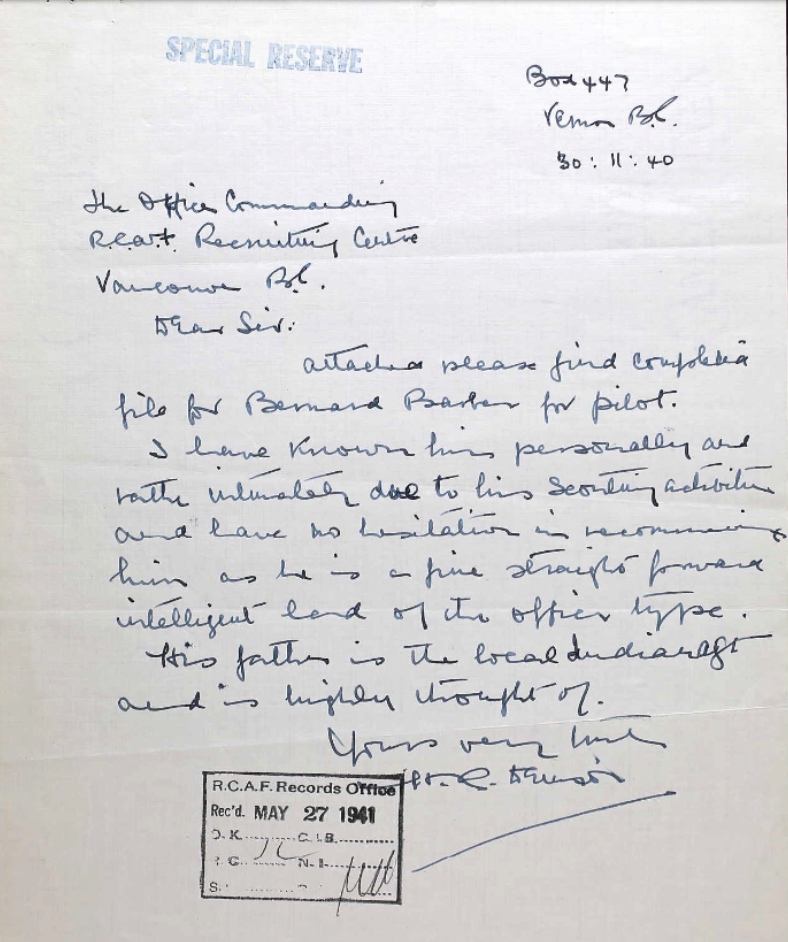 SPECIAL RESERVE
Box 447
Vernon B.C.
30 : 11 : 40
The Officer Commanding
R.C.A.F. Recruiting Centre
Vancouver B.C.
Dear Sir:
Attached please find completed
file for Bernard Barber for pilot.
I have known him personally and
rather intimately due to his Scouting activities
and have no hesitation in recommending
him as he is a fine straight forward
intelligent lad of the officer type.
His father is the local Indian agt
and is highly thought of.
Yours very truly
R.C.A.F. Records Office
Rec'd. MAY 27 1941
O.K. C.I.B.
N.I.
S.